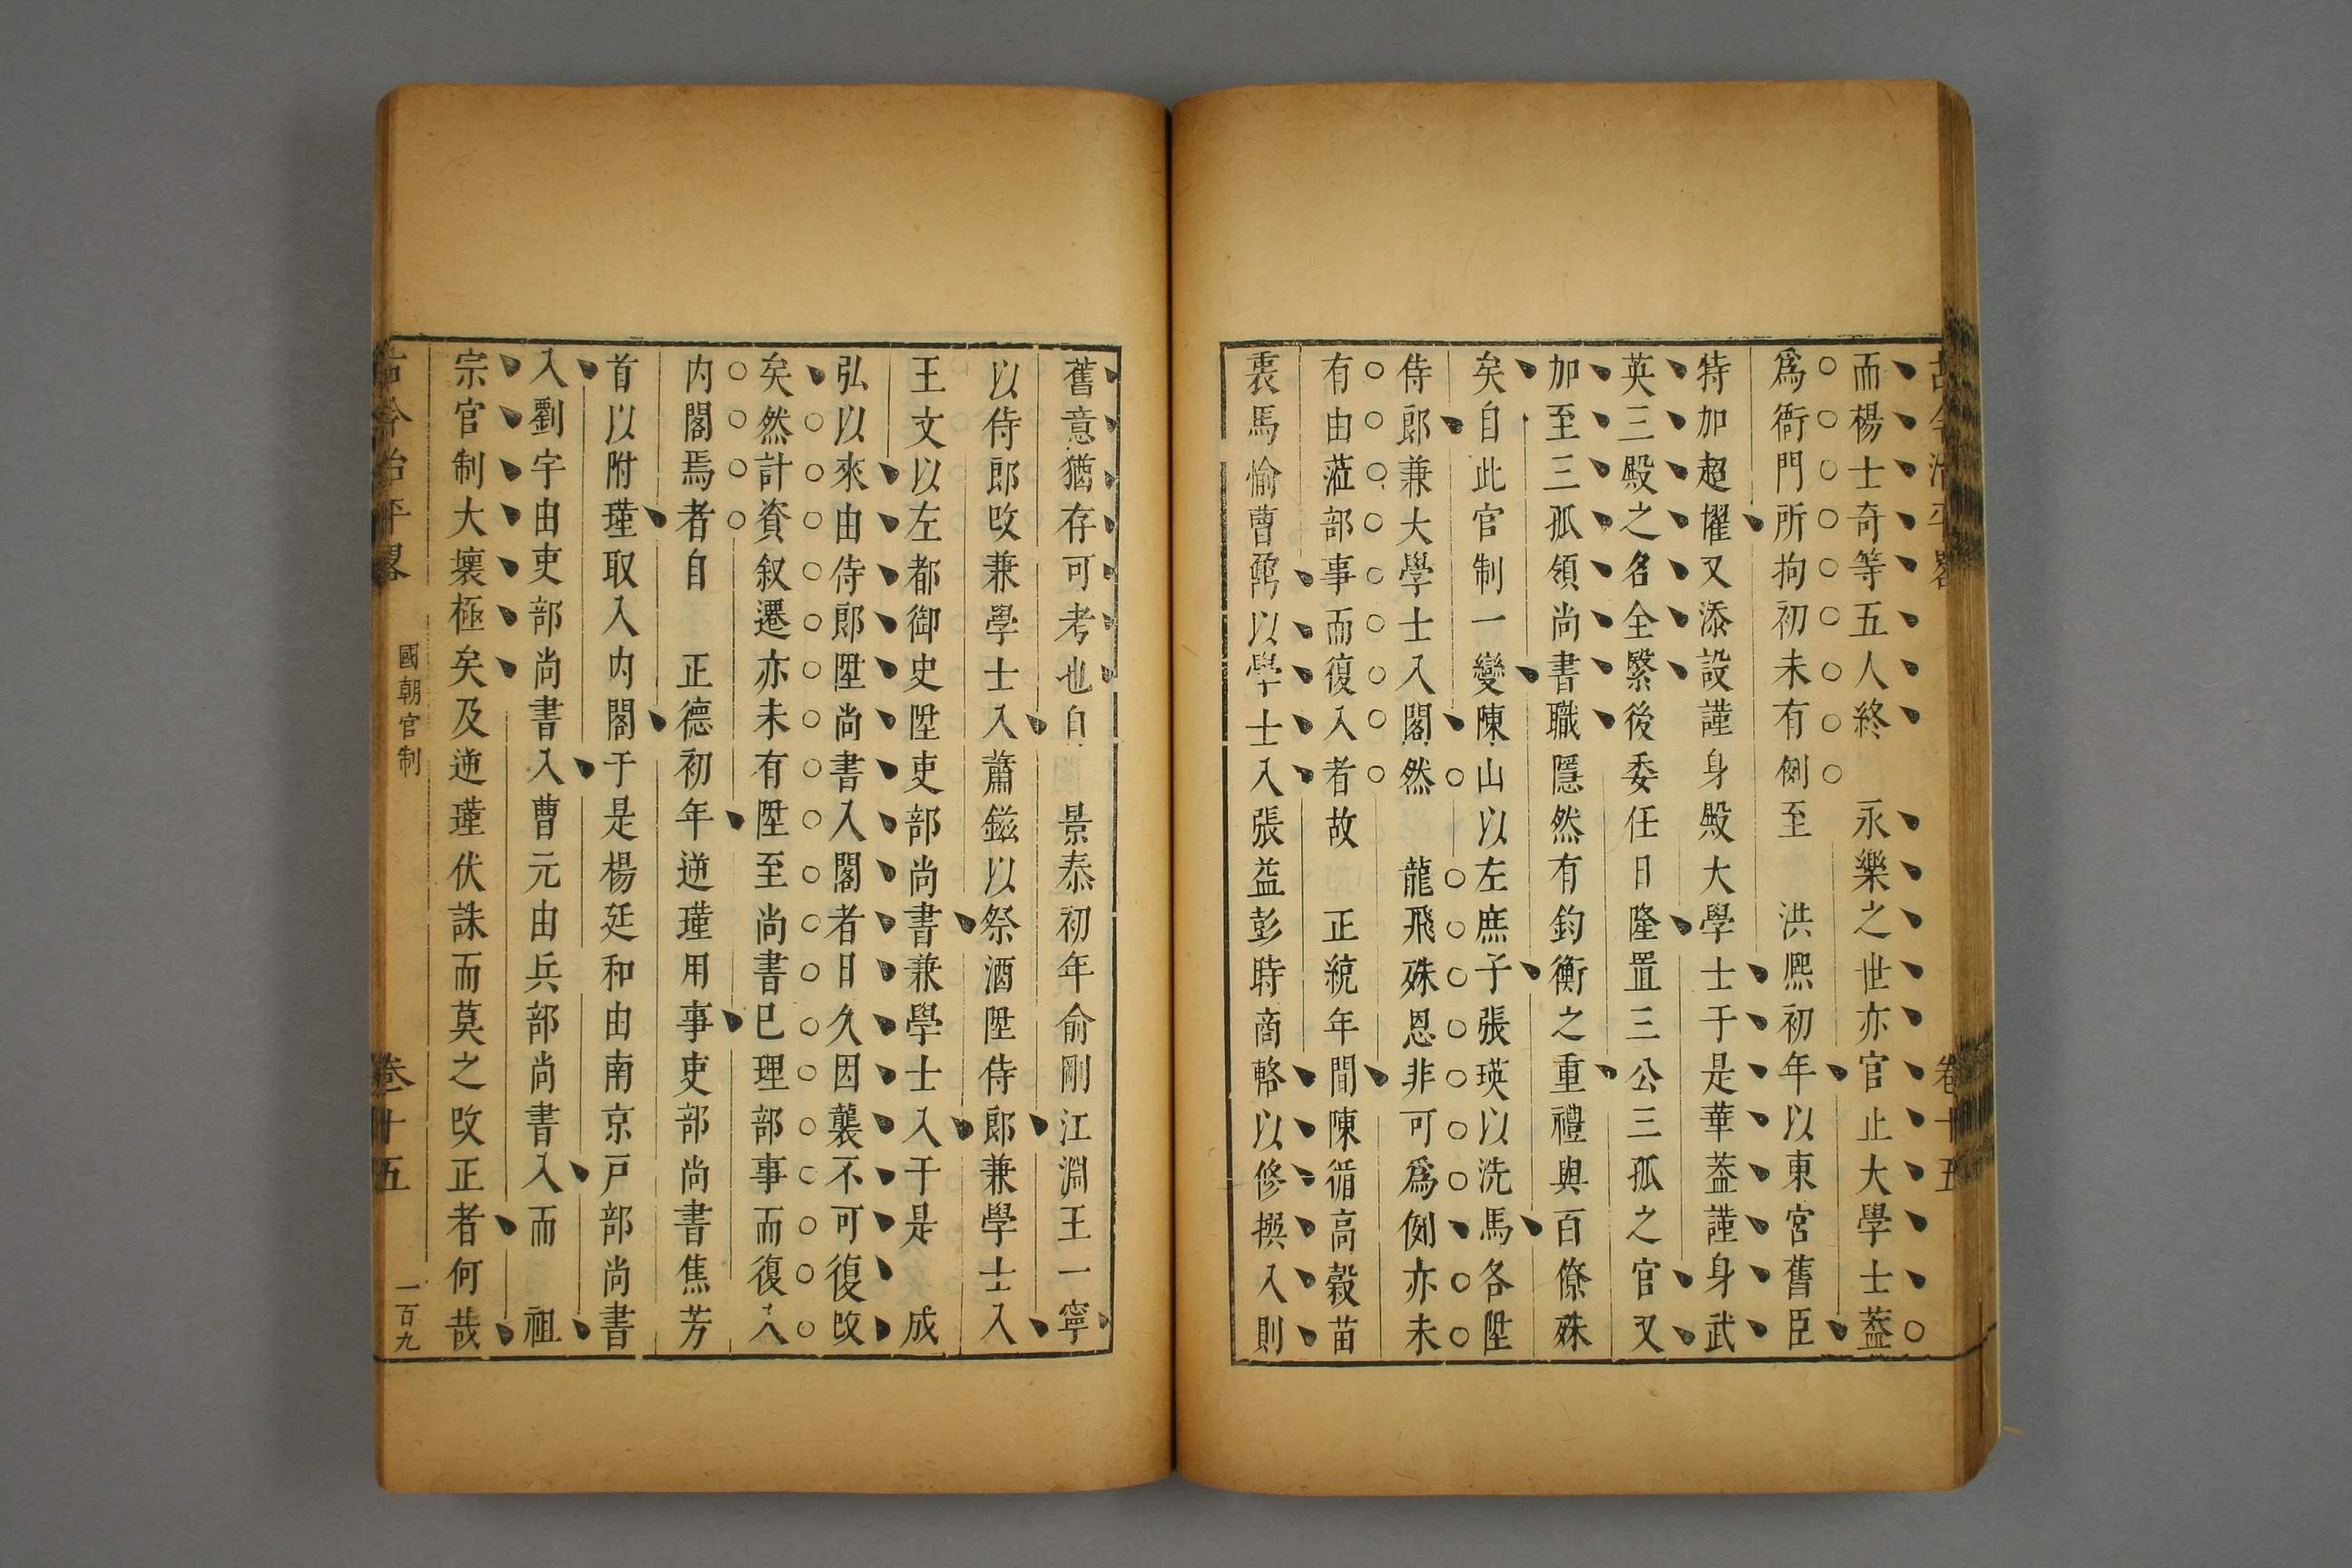 古今治平畧 卷十五
而楊士奇等五人終 永樂之世亦官止大學士葢
爲衙門所拘初未有例至 洪熈初年以東宮舊臣
特加超擢又添設謹身殿大學士于是華葢謹身武
英三殿之名全繄後委任日隆置三公三孤之官又
加至三孤領尚書職隱然有鈞衡之重禮與百僚殊
矣自此官制一變陳山以左庶子張瑛以洗馬各陞
侍郎兼大學士入閣然 龍飛殊恩非可爲例亦未
有由蒞部事而復入者故 正統年間陳循高穀苗
衷馬愉曹鼐以學士入張益彭時商輅以修撰入則
舊意猶存可考也自 景泰初年俞剛江淵王一寧
以侍郎改兼學士入蕭鎡以祭酒陞侍郎兼學士入
王文以左都御史陞吏部尚書兼學士入于是 成
弘以來由侍郎陞尚書入閣者日久因襲不可復改
矣然計資叙遷亦未有陞至尚書已理部事而復入
内閣焉者自 正德初年逆瑾用事吏部尚書焦芳
首以附瑾取入内閣于是楊廷和由南京戸部尚書
入劉宇由吏部尚書入曹元由兵部尚書入而 祖
宗官制大壞極矣及逆瑾伏誅而莫之改正者何哉
古今治平畧 國朝官制 卷十五 一百九